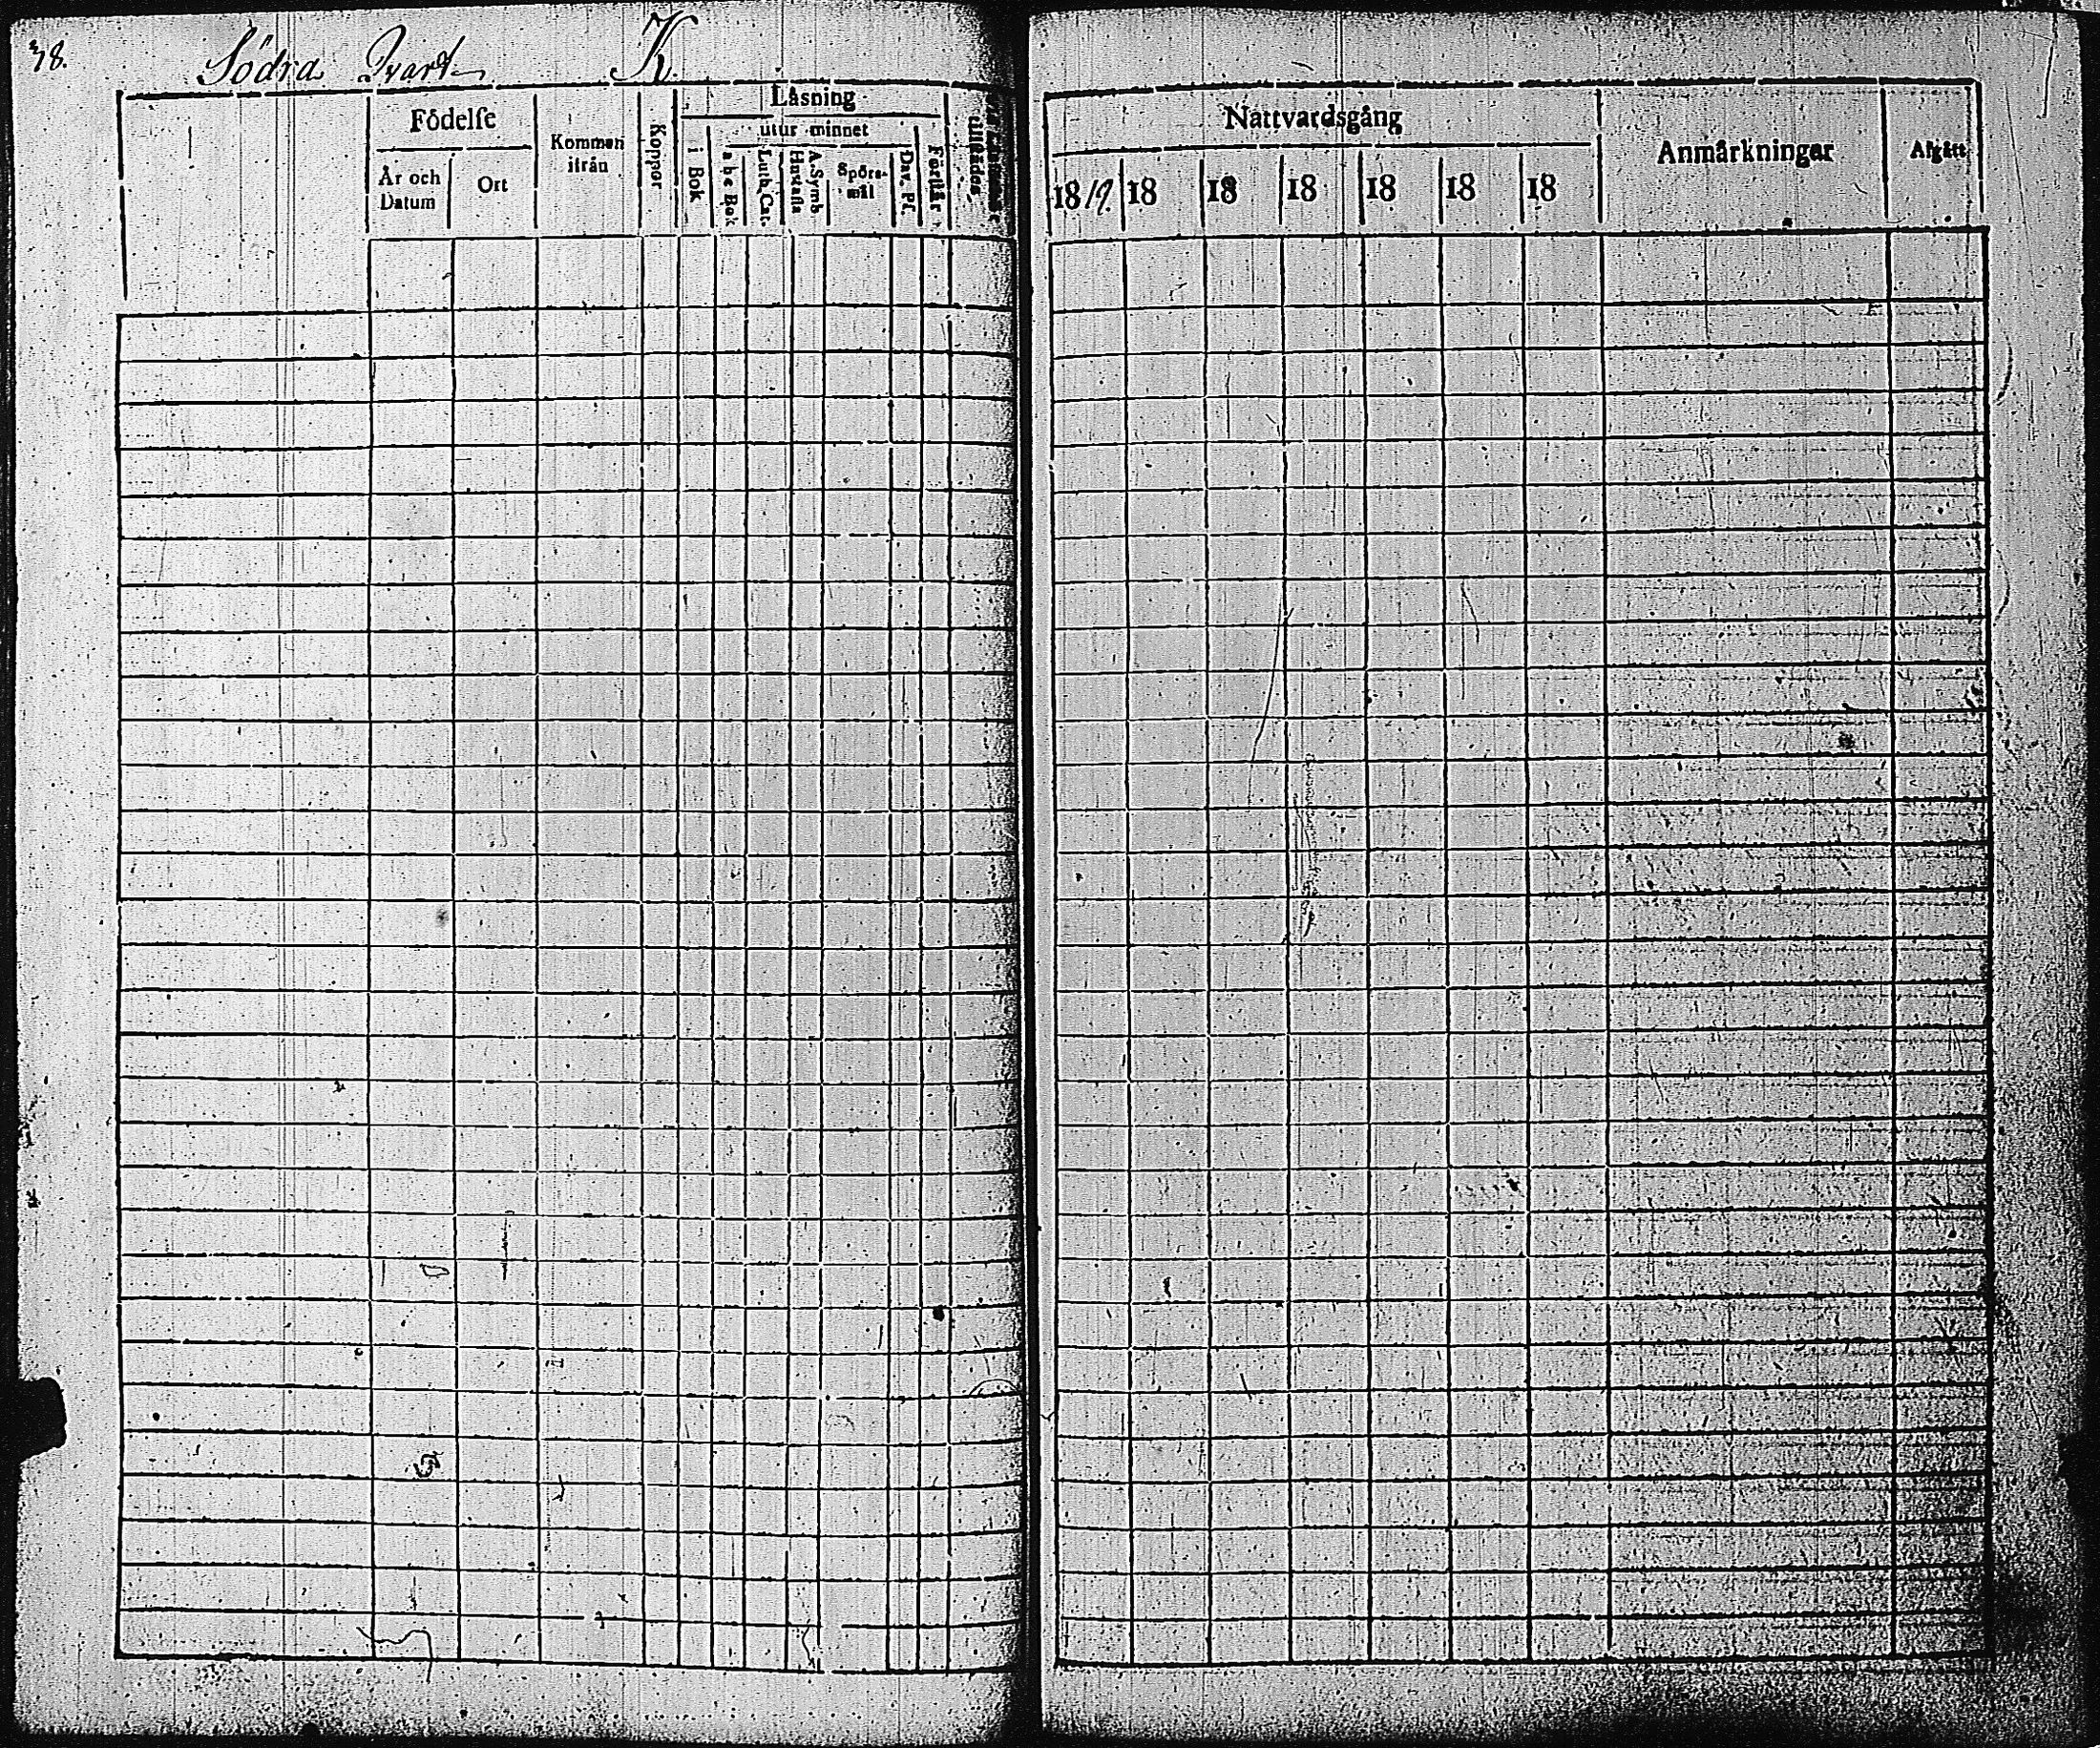 38.
Södra Qvart. K.
Födelse
År och Datum
Ort
Kommen ifrån
Koppor
Läsning
i Bok
utur minnet
a b c Bok
Luth. Cat.
A. Symb
Hustafla
Spörs-
mål
Dav. Ps.
Förstår
tillträdes
Nattvardsgång
1819. 18 18 18 18 18 18
Anmärkningar
Afgått